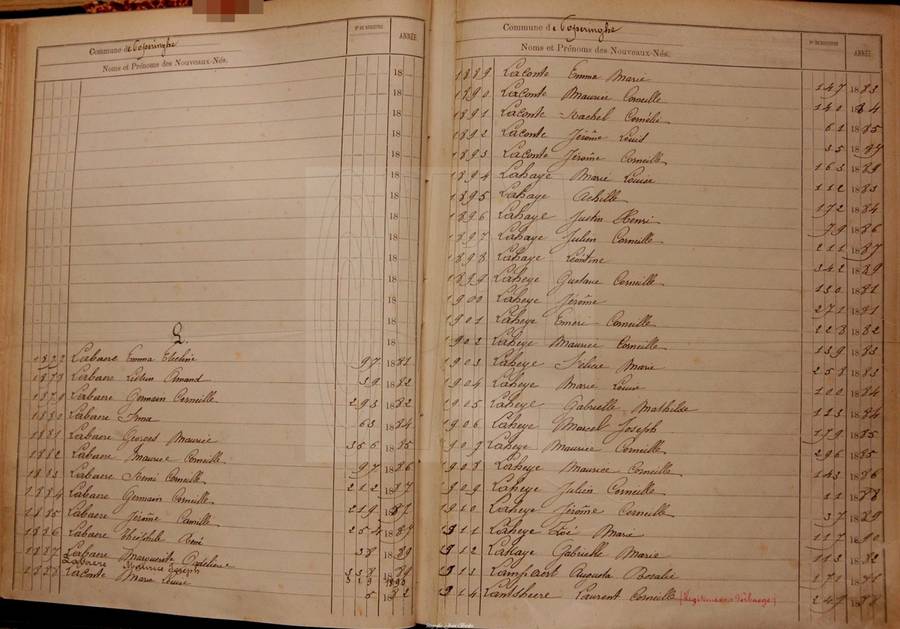 Commune de Poperinghe
Noms et Prénoms des Nouveaux-Nés.
ANNÉE
L.
Labaere Emma Eveline 97 1881
Labaere Amand 39 1882
Labaere Germain Corneille 293 1882
1880 Labaere Irma 63 1884
1881 Labaere Georges Maurice 356 1885
1882 Labaere Maurice Corneille 97 1886
1883 Labaere Corneille 212 1887
1884 Labaere Germain Corneille 219 1887
1885 Labaere Jérôme Camille 254 1889
1886 Labaere Théophile René 38 1889
1887 Labaere Marguerite
Labaere Maurice Joseph
1888 Laconte Marie Louise 5 1882
Commune de Poperinghe
Noms et Prénoms des Nouveaux-Nés.
ANNÉE
1889 Laconte Emma Marie 147 1883
1890 Laconte Maurice Corneille 140 1884
1891 Laconte Rachel Cornélie 61 1885
1892 Laconte Jérôme Louis 35 1887
1893 Laconte Jérôme Corneille 163 1889
1894 Lahaye Marie Louise 112 1883
1895 Lahaye Achille 172 1884
1896 Lahaye Justin Henri 79 1886
1897 Lahaye Julien Corneille 211 1887
1898 Lahaye Léontine 342 1889
1899 Laheye Gustave Corneille 130 1881
1900 Laheye Jérôme 271 1881
1901 Laheye Corneille 228 1882
1902 Laheye Maurice Corneille 139 1883
1903 Laheye Marie 258 1883
1904 Laheye Marie Louise 100 1884
1905 Laheye Gabrielle Mathilde 113 1884
1906 Laheye Marcel Joseph 179 1885
1907 Laheye Maurice Corneille 296 1885
1908 Laheye Maurice Corneille 143 1886
1909 Laheye Julien Corneille 11 1888
1910 Laheye Jérôme Corneille 37 1889
1911 Laheye Zoé Marie 117 1890
1912 Lahaye Gabrielle Marie 113 1882
1913 Lampaert Augusta Rosalie 171 1881
1914 Lantsheere Laurent Corneille